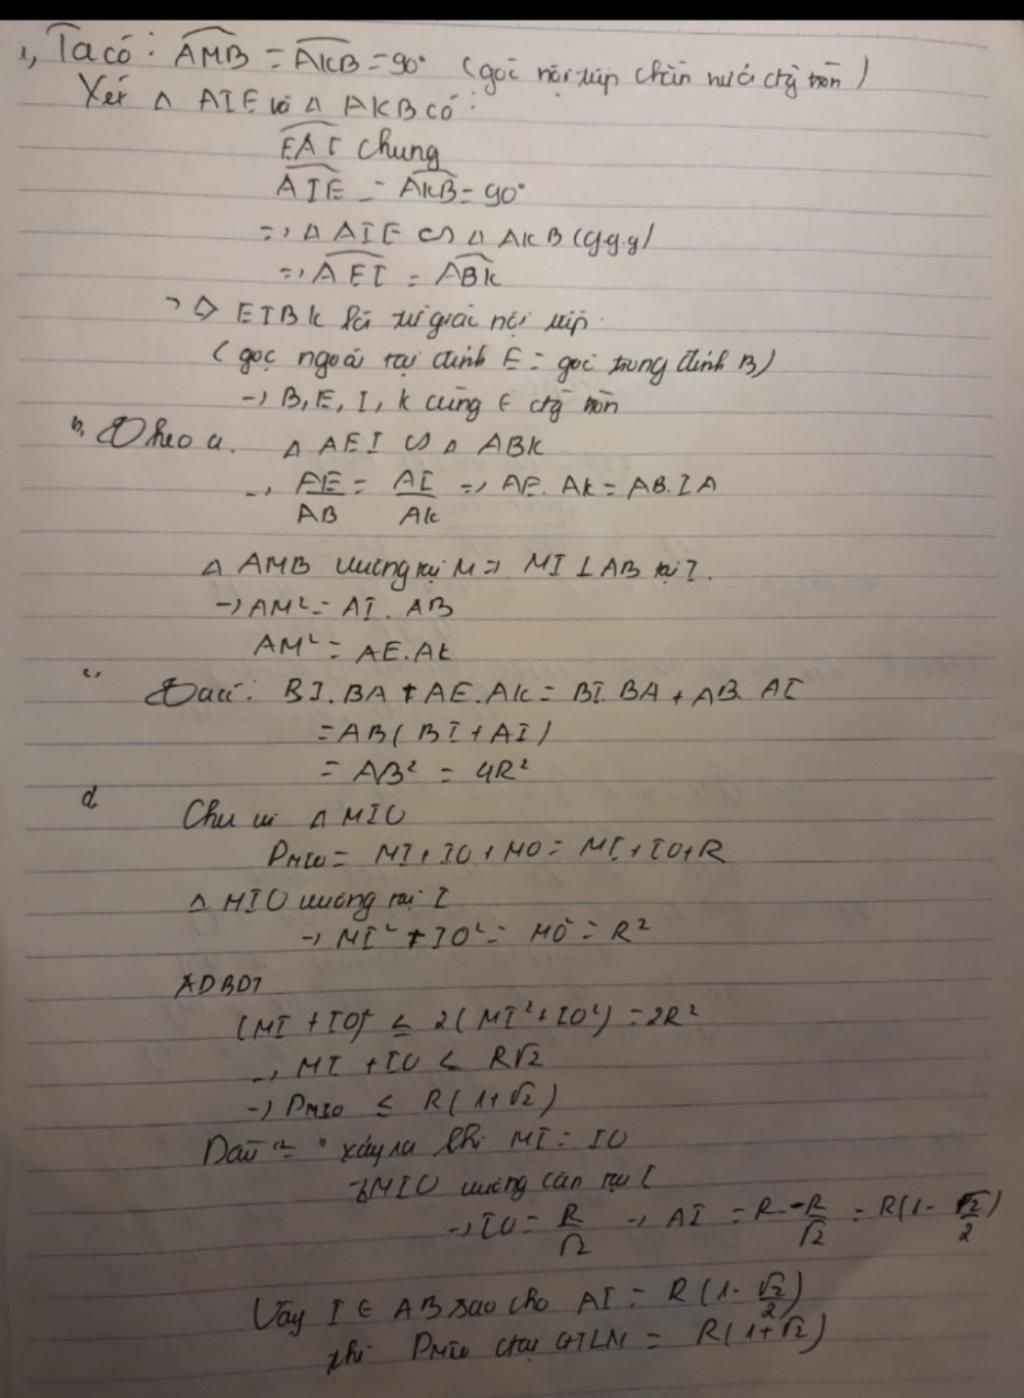 1, Ta có: AMB = AKB = 90° (góc nội tiếp chắn nửa đg tròn)
Xét Δ AIE và Δ AKB có:
EAI chung
AIE = AKB = 90°
=> Δ AIE ∽ Δ AKB (g.g.g)
=> AEI = ABK
=> ◇ EIBK là tứ giác nội tiếp.
(góc ngoài tại đỉnh E = góc trong đỉnh B)
-> B, E, I, K cùng ∈ đg tròn
b, Theo a. Δ AEI ∽ Δ ABK
-> AE/AB = AI/AK => AE. AK = AB. IA
Δ AMB vuông tại M => MI ⊥ AB tại I.
-> AM² = AI. AB
AM² = AE.AK
c, Ta có: BI.BA + AE.AK = BI.BA + AB. AI
= AB( BI + AI)
= AB² = 4R²
d
Chu vi Δ MIO
PMIO = MI + IO + MO = MI + IO + R
Δ MIO vuông tại I
-> MI² + IO² = MO² = R²
ADBĐT
(MI + IO)² ≤ 2(MI² + IO²) = 2R²
-> MI + IO < R√2
-> PMIO ≤ R(1+√2)
Dấu "=" xảy ra khi MI = IO
MIO vuông cân tại I
-> IO = R/√2 -> AI = R - R/√2 = R(1 - √2/2)
Vậy I ∈ AB sao cho AI = R(1 - √2/2)
thì PMIO đạt GTLN = R(1+√2)